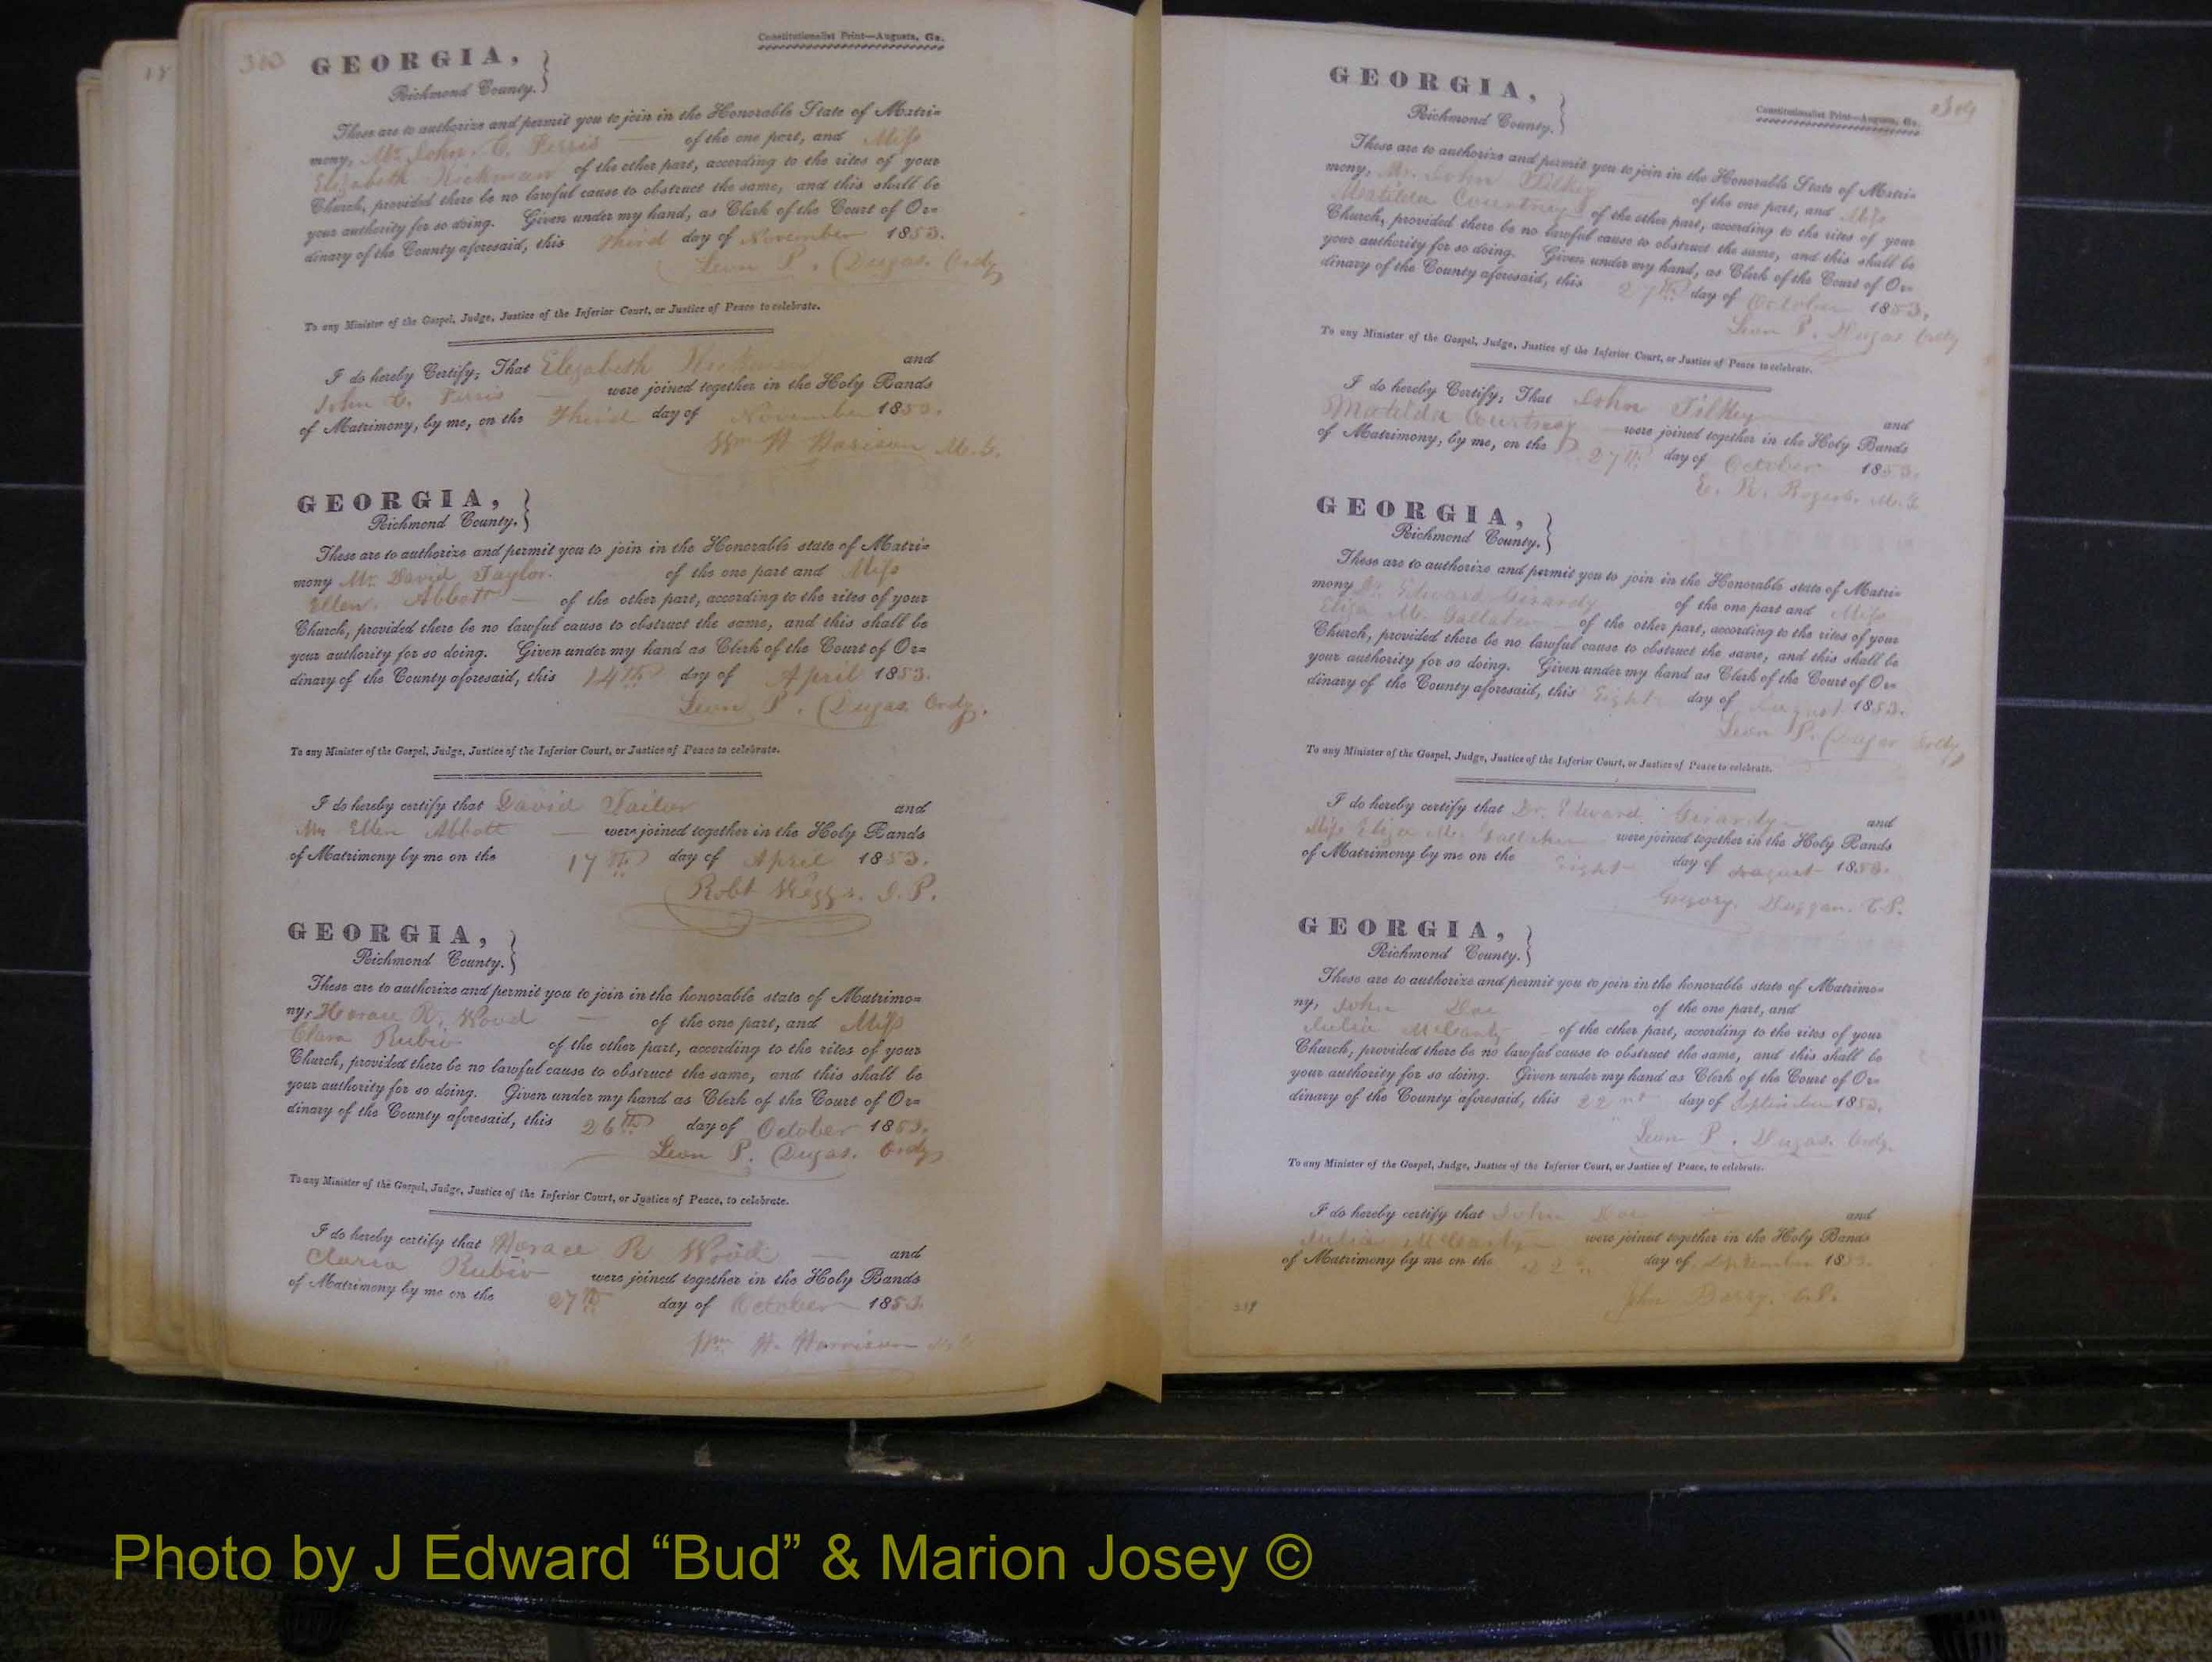 310
Constitutionalist Print—Augusta, Ga.
GEORGIA,
Richmond County.
These are to authorize and permit you to join in the Honorable State of Matri-
mony, Mr. John C. Ferris of the one part, and Miss
Elizabeth Hickman of the other part, according to the rites of your
Church, provided there be no lawful cause to obstruct the same, and this shall be
your authority for so doing. Given under my hand, as Clerk of the Court of Or-
dinary of the County aforesaid, this Third day of November 1853.
Leon P. Dugas. Ordy
To any Minister of the Gospel, Judge, Justice of the Inferior Court, or Justice of Peace to celebrate.
I do hereby Certify, That Elizabeth Hickman and
John C. Ferris were joined together in the Holy Bands
of Matrimony, by me, on the Third day of November 1853.
Wm H Harison M.G.
GEORGIA,
Richmond County.
These are to authorize and permit you to join in the Honorable state of Matri-
mony Mr. David Taylor. of the one part and Miss
Ellen. Abbott of the other part, according to the rites of your
Church, provided there be no lawful cause to obstruct the same, and this shall be
your authority for so doing. Given under my hand as Clerk of the Court of Or-
dinary of the County aforesaid, this 14th day of April 1853.
Leon P. Dugas Ordy.
To any Minister of the Gospel, Judge, Justice of the Inferior Court, or Justice of Peace to celebrate.
I do hereby certify that David Tailor and
Ellen Abbott were joined together in the Holy Bands
of Matrimony by me on the 17th day of April 1853.
Robt J.P.
GEORGIA,
Richmond County.
These are to authorize and permit you to join in the honorable state of Matrimo-
ny, Horace R. Wood of the one part, and Miss
Clara Rubio of the other part, according to the rites of your
Church, provided there be no lawful cause to obstruct the same, and this shall be
your authority for so doing. Given under my hand as Clerk of the Court of Or-
dinary of the County aforesaid, this 26th day of October 1853.
Leon P. Dugas. Ordy
To any Minister of the Gospel, Judge, Justice of the Inferior Court, or Justice of Peace, to celebrate.
I do hereby certify that Horace R Wood and
Clara Rubio were joined together in the Holy Bands
of Matrimony by me on the 27th day of October 1853.
Wm. H. Harrison
309
Constitutionalist Print—Augusta, Ga.
GEORGIA,
Richmond County.
These are to authorize and permit you to join in the Honorable State of Matri-
mony, Mr. John Tilkey of the one part, and Miss
Matilda Courtney of the other part, according to the rites of your
Church, provided there be no lawful cause to obstruct the same, and this shall be
your authority for so doing. Given under my hand, as Clerk of the Court of Or-
dinary of the County aforesaid, this 27th day of October 1853,
Leon P. Dugas Ordy
To any Minister of the Gospel, Judge, Justice of the Inferior Court, or Justice of Peace to celebrate.
I do hereby Certify, That John Tilkey and
Matilda Courtney were joined together in the Holy Bands
of Matrimony, by me, on the 27th day of October 1853.
E. R. M.G
GEORGIA,
Richmond County.
These are to authorize and permit you to join in the Honorable state of Matri-
mony Dr. Edward Girardy of the one part and Miss
Eliza M. of the other part, according to the rites of your
Church, provided there be no lawful cause to obstruct the same, and this shall be
your authority for so doing. Given under my hand as Clerk of the Court of Or-
dinary of the County aforesaid, this Eight day of August 1853.
Leon P. Dugas Ordy
To any Minister of the Gospel, Judge, Justice of the Inferior Court, or Justice of Peace to celebrate.
I do hereby certify that Dr. Edward Girardy and
Miss Eliza M. were joined together in the Holy Bands
of Matrimony by me on the Eight day of August 1853.
Gregory Duggan. C.P.
GEORGIA,
Richmond County.
These are to authorize and permit you to join in the honorable state of Matrimo-
ny, John of the one part, and
Julia McCarty of the other part, according to the rites of your
Church, provided there be no lawful cause to obstruct the same, and this shall be
your authority for so doing. Given under my hand as Clerk of the Court of Or-
dinary of the County aforesaid, this 22nd day of September 1853.
Leon P. Dugas. Ordy.
To any Minister of the Gospel, Judge, Justice of the Inferior Court, or Justice of Peace, to celebrate.
I do hereby certify that John and
Julia McCarty were joined together in the Holy Bands
of Matrimony by me on the 22 day of September 1853.
John Barry. C.P.
Photo by J Edward “Bud” & Marion Josey ©